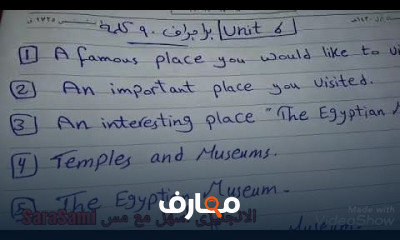 براجراف ٩٠ كلمة Unit 6
1 A famous place you would like to
2 An important place you visited.
3 An interesting place "The Egyptian
4 Temples and Museums.
5 The Egyptian Museum.
معارف
مع مس SaraSami
Made with
VideoShow